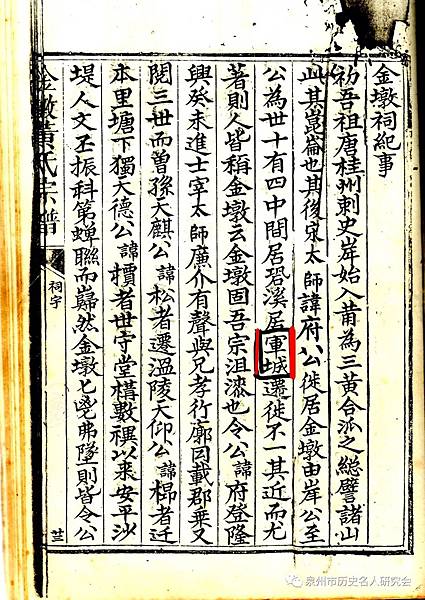 金墩祠紀事
初吾祖唐桂州刺史岸始入莆為三黃合派之總譬諸山
此其崑崙也其後宋太師諱府公徙居金墩由岸公至
公為世十有四中間居恐溪居軍城遷徙不一其近而尤
著則人皆稱金墩云金墩固吾宗沮漆也令公諱府登隆
興癸未進士宰太師廣介有聲與兄孝行廓因載郡乗又
閱三世而曽孫天麒公諱松者遷溫陵天仰公諱㮰者迁
本里塘下獨大德公諱櫝者世守堂構數禩以来安平沙
堤人文丕振科第蟬聯而巋然金墩匕鬯弗墜一則皆令公
金墩黃氏宗譜
祠宇
廿三
泉州市历史名人研究会